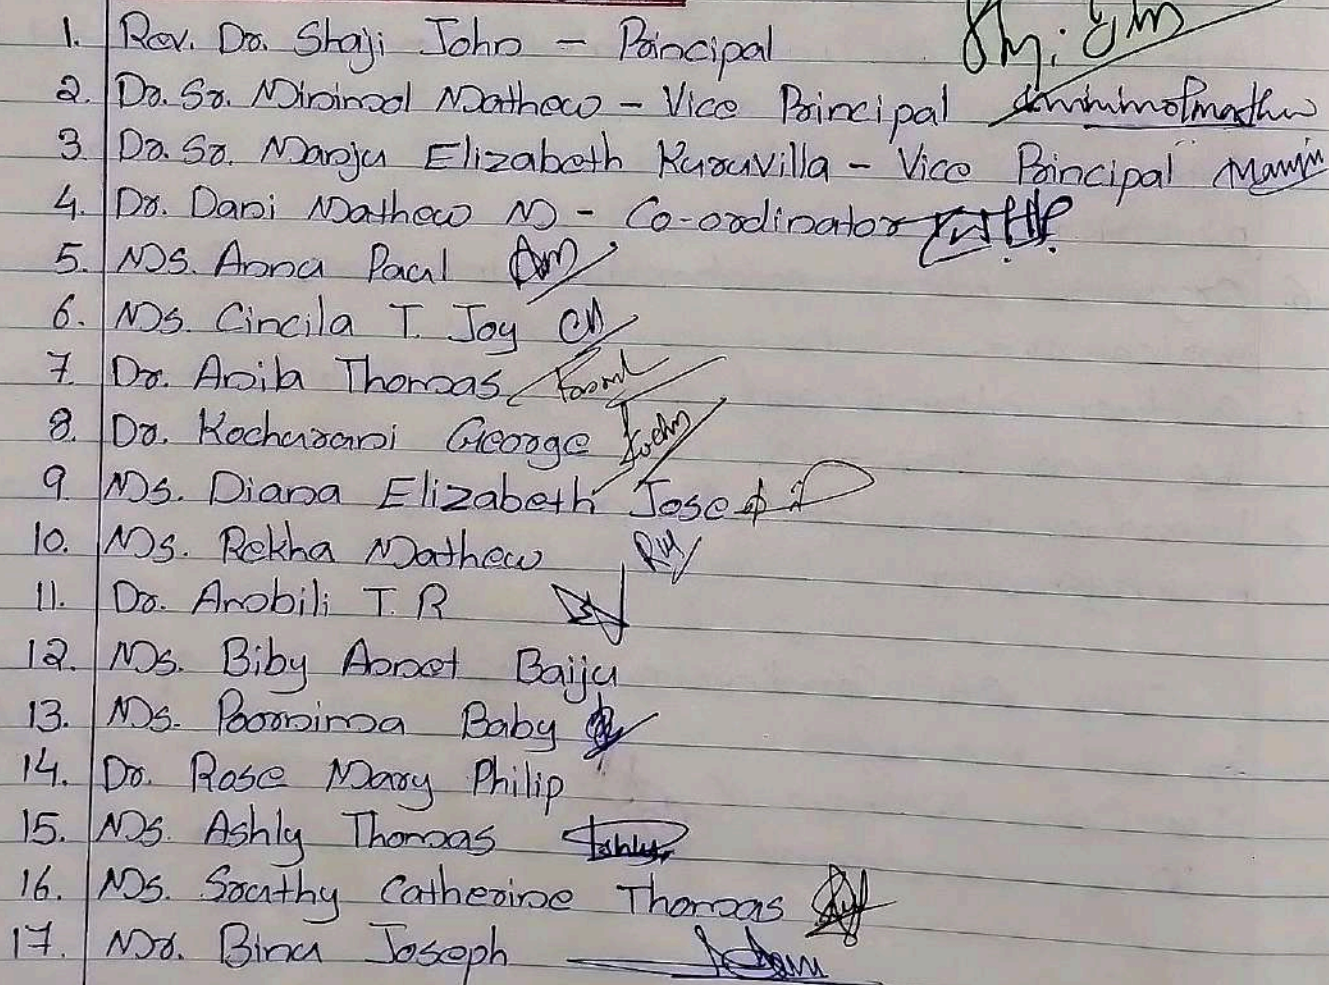 1. Rev. Dr. Shaji John - Principal
2. Dr. Sr. Minimol Mathew - Vice Principal
3. Dr. Sr. Manju Elizabeth Kuruvilla - Vice Principal
4. Dr. Dani Mathew M - Co-ordinator
5. Ms. Anna Paul
6. Ms. Cincila T. Joy
7. Dr. Anila Thomas
8. Dr. Kochurani George
9. Ms. Diana Elizabeth Jose
10. Ms. Rekha Mathew
11. Dr. Ambili T. R
12. Ms. Biby Annet Baiju
13. Ms. Poornima Baby
14. Dr. Rose Mary Philip
15. Ms. Ashly Thomas
16. Ms. Sruthy Catherine Thomas
17. Mr. Binu Joseph